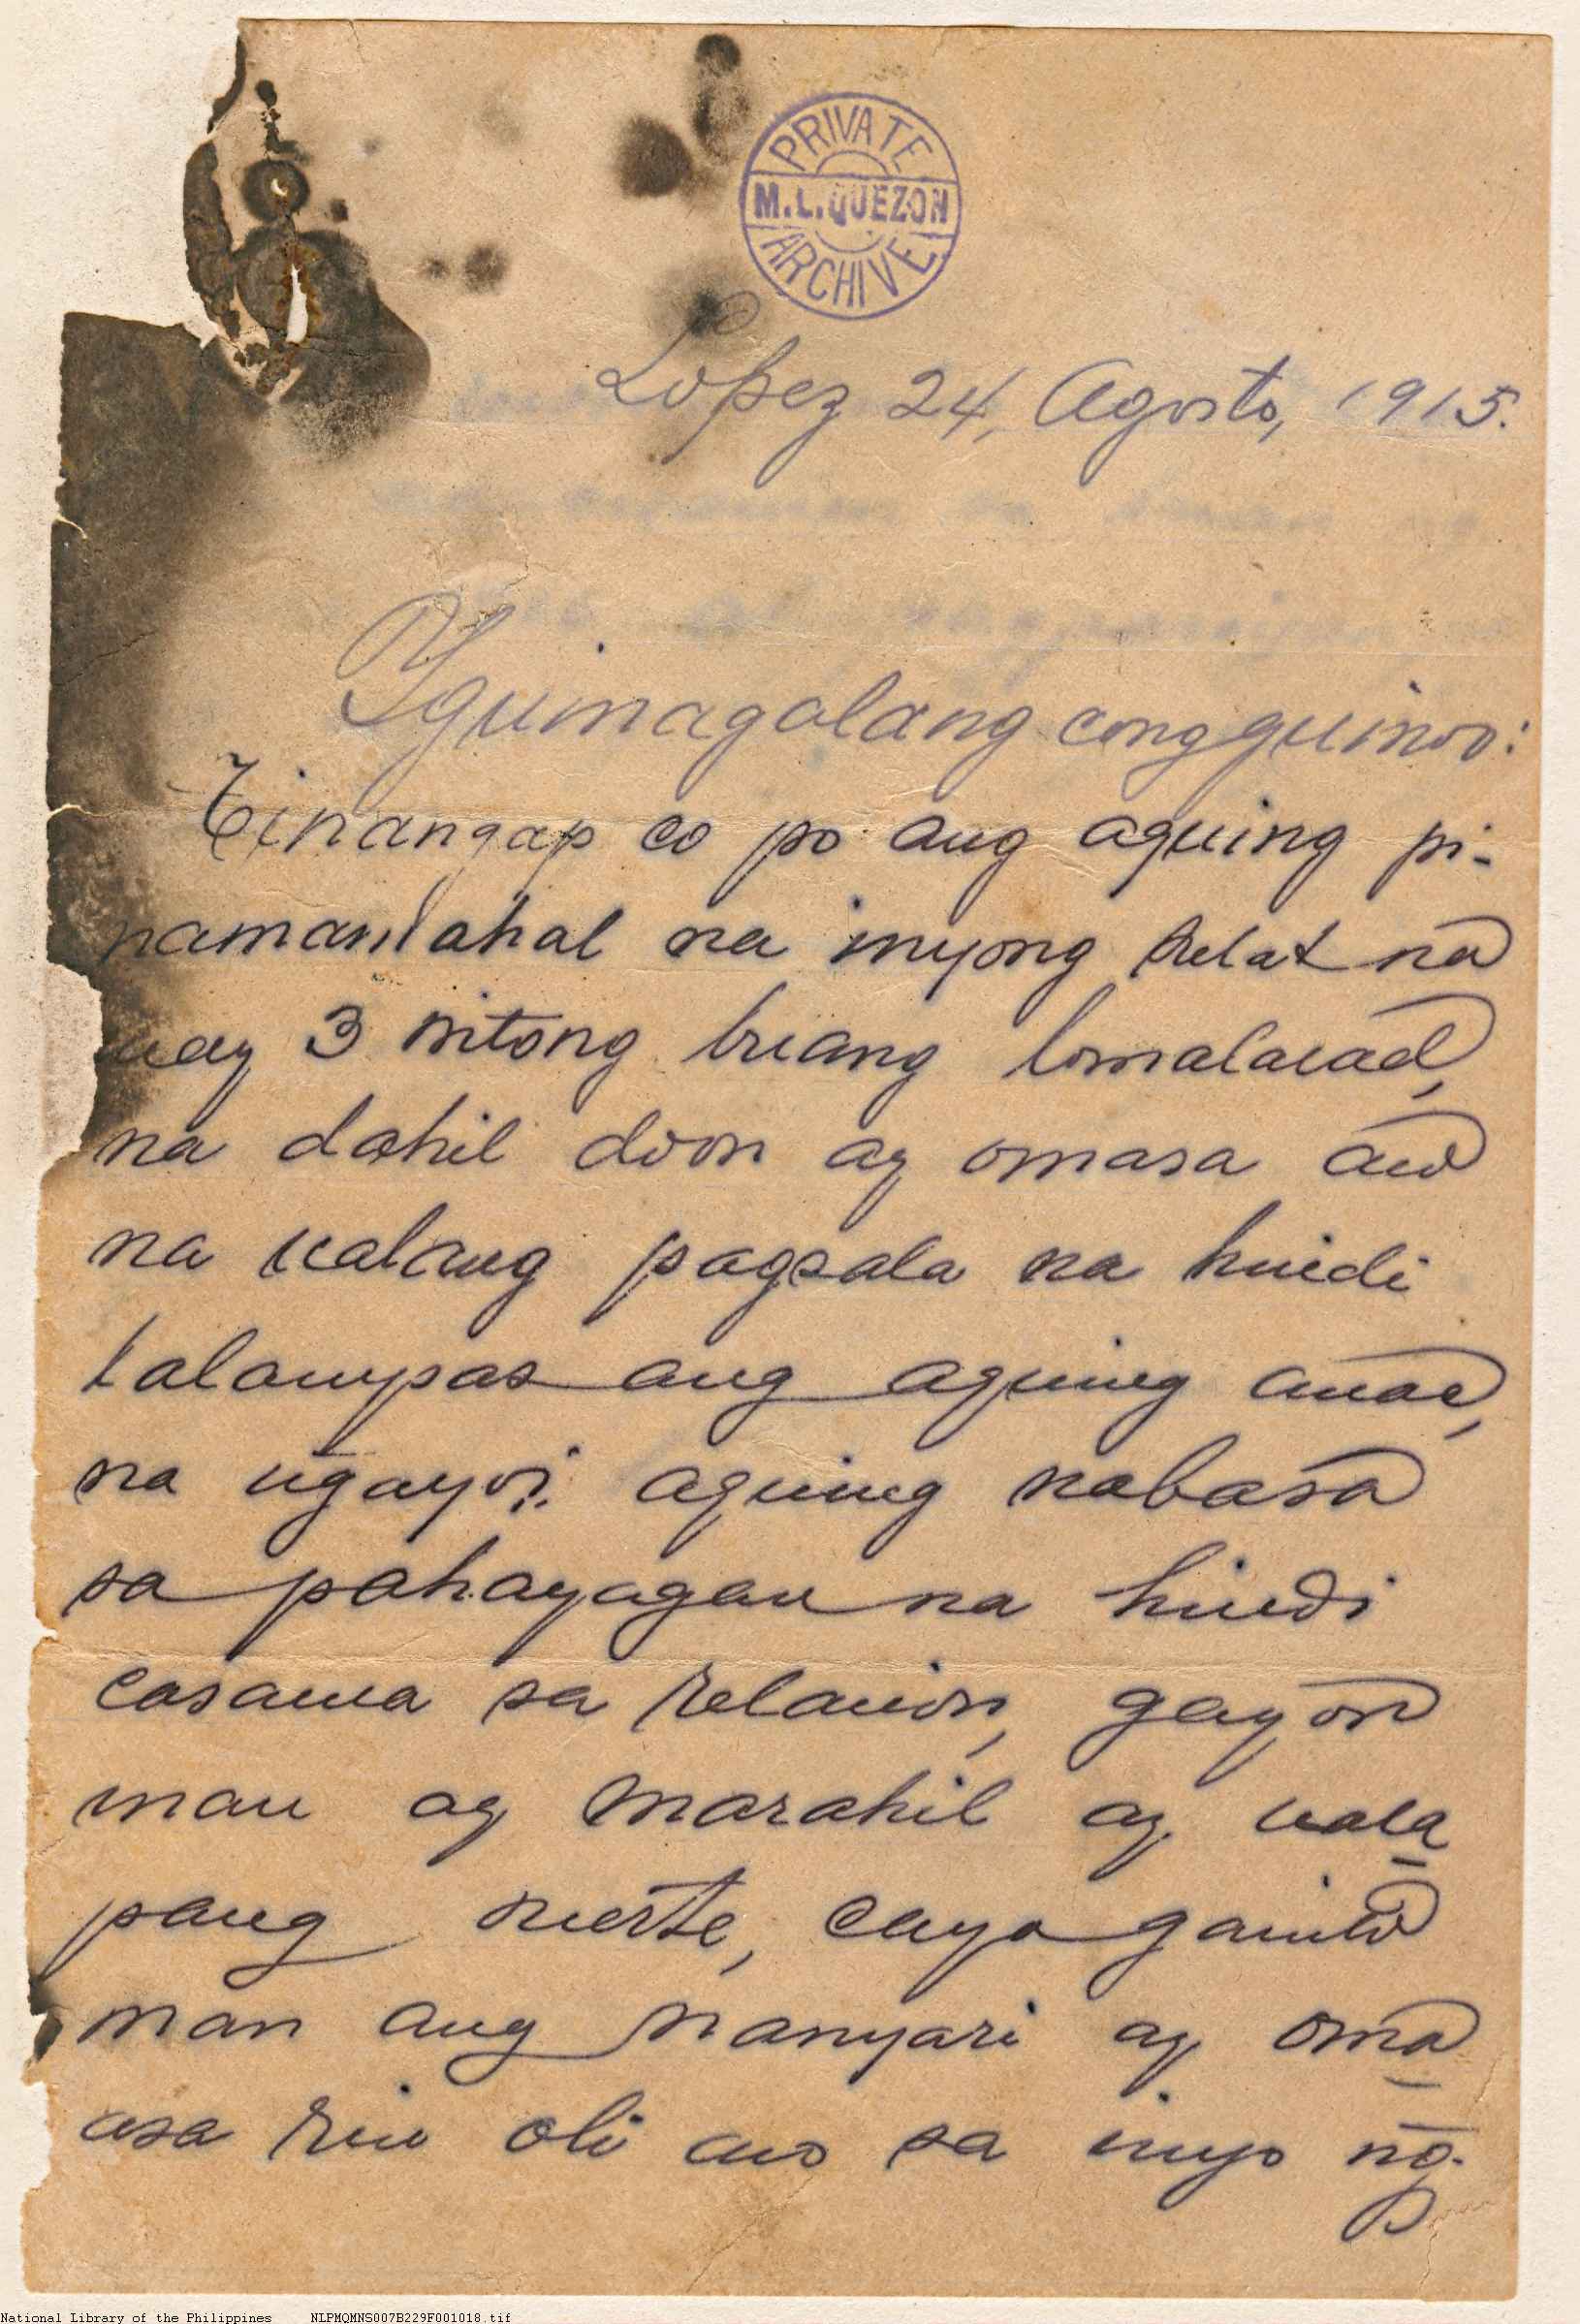 PRIVATE
M.L.QUEZON
ARCHIVE
Lopez 24, Agosto, 1915.
Yguinagalang cong guinoo:
Tinangap co po ang aquing pi-
namamahal na inyong sulat na
may 3 nitong buang lomalacad,
na dahil doon ay omasa aco
na ualang pagsala na hindi
talampas ang aquing anac,
na ngayoi, aquing nabasa
sa pahayagan na hindi
casama sa relacion, gayon
man ay marahil ay uala
pang suerte, caya ganito
man ang nanyari ay oma
asa rin oli aco sa inyo ng.
National Library of the Philippines NLPMQMNS007B229F001018.tif